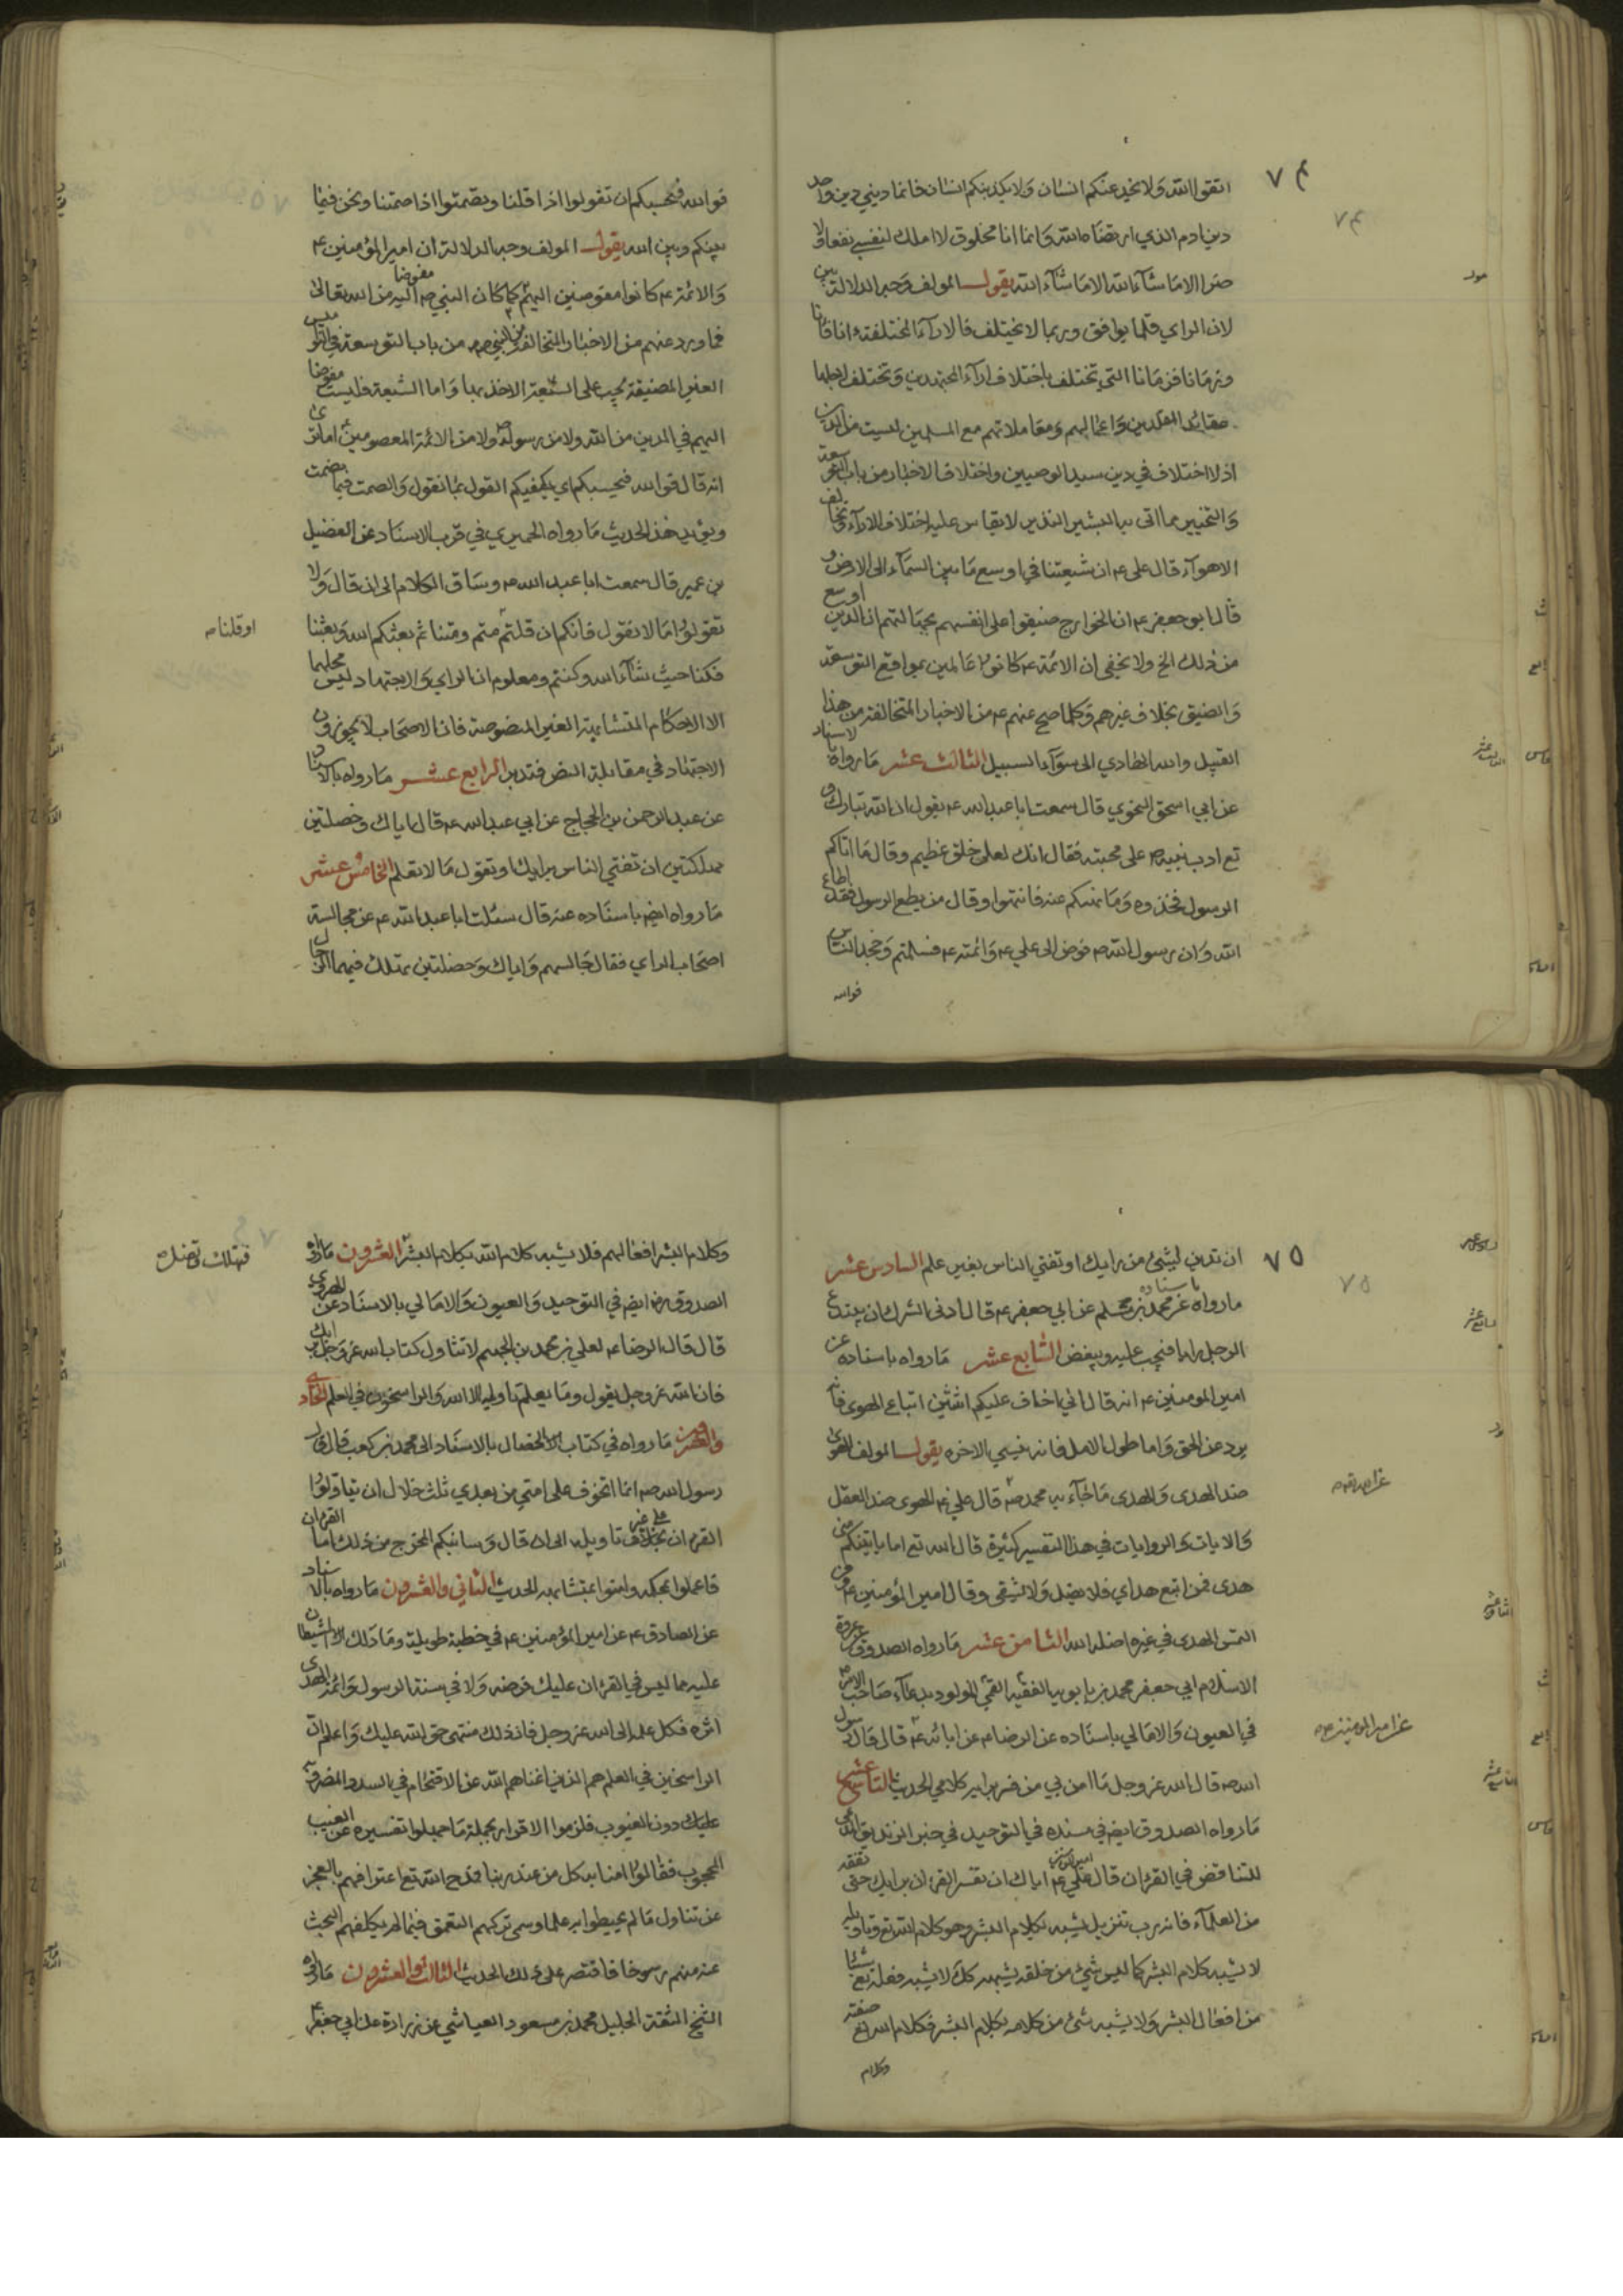 ٧٤
اتقوا الله ولا يخدعنكم انسان ولا يكذبنكم انسان فانما ديني دين واحد
دين ادم الذي ارتضاه الله وانما انا مخلوق لا املك لنفسي نفعا ولا
ضرا الا ما شآء الله الا ما شآء الله يقول المولف وجه الدلالة بين
لان الراي قلما يوافق وربما لا يختلف فالارآء المختلفة انا فانا
وزمانا فزمانا التي تختلف باختلاف ارآء المجتهدين وتختلف لاجلها
عقائد المقلدين واعمالهم ومعاملاتهم مع المسلمين ليست من الدين
اذ لا اختلاف في دين سيد الوصيين واختلاف الاخبار من باب التوسعة
والتخيير مما اتى به البشير النذير لا يقاس عليه اختلاف الارآء وتخالف
الاهوآء قال علي ع ان شيعتنا في اوسع ما بين السمآء الى الارض و
قال ابو جعفر ع ان الخوارج ضيقوا على انفسهم بجهالتهم ان الدين اوسع
من ذلك الخ ولا يخفى ان الائمة ع كانوا عالمين بمواقع التوسعة
والضيق بخلاف غيرهم وكلما صح عنهم ع من الاخبار المتخالفة من هذا
القبيل والله الهادي الى سوآء السبيل الثالث عشر ما رواه بالاسناد
عن ابي اسحق النحوي قال سمعت ابا عبد الله ع يقول ان الله تبارك و
تع ادب نبيه ص على محبته فقال انك لعلى خلق عظيم وقال ما اتاكم
الرسول فخذوه وما نهيكم عنه فانتهوا وقال من يطع الرسول فقد اطاع
الله وان رسول الله ص فوض الى علي ع وائمته ع فسلمتم وجحد الناس
فوالله
فوالله فحسبكم ان تقولوا اذا قلنا وتصمتوا اذا صمتنا ونحن فيما
بينكم وبين الله يقول المولف وجه الدلالة ان امير المؤمنين ع
والائمة ع كانوا مفوضين اليهم كما كان النبي ص مفوضا اليه من الله تعالى
فما ورد عنهم من الاخبار المتخالفة من النبي ص من باب التوسعة في
الغير المضيقة يجب على الشيعة الاخذ بها واما الشيعة فليست مفوضا
اليهم في الدين من الله ولا من رسوله ص ولا من الائمة المعصومين ع اما ترى
انه قال فوالله فحسبكم اي يكفيكم القول بما نقول والصمت فيما نصمت
ويؤيد هذ الحديث ما رواه الحميري في قرب الاسناد عن الفضيل
بن عمير قال سمعت ابا عبد الله ع وساق الكلام الى ان قال ولا
تقولوا ما لا نقول فانكم ان قلتم متم ومتنا ثم بعثكم الله وبعثنا
او قلنا ص
فكنا حيث شآء الله وكنتم ومعلوم ان الراي والاجتهاد ليس محلهما
الا الاحكام المتشابهة الغير المنصوصة فان الاصحاب لا يجوزون
الاجتهاد في مقابلة النص فتدبر الرابع عشر ما رواه بالاسناد
عن عبد الرحمن بن الحجاج عن ابي عبد الله ع قال اياك وخصلتين
مهلكتين ان تفتي الناس برايك او تقول ما لا تعلم الخامس عشر
ما رواه ايض باسناده عنه قال سئلت ابا عبد الله ع عن مجالسة
اصحاب الراي فقال جالسهم واياك وخصلتين تهلك فيهما الرجال
٧٥
ان تدين لشئ من رايك او تفتي الناس بغير علم السادس عشر
ما رواه باسناده عن محمد بن مسلم عن ابي جعفر ع قال ادنى الشرك ان يبتدع
الرجل رايا فيحب عليه ويبغض السابع عشر ما رواه باسناده عن
امير المومنين ع انه قال اني اخاف عليكم اثنتين اتباع الهوى فانه
يرد عن الحق واما طول الامل فانه ينسي الاخره يقول المولف الهوى
ضد الهدى والهدى ما جآء به محمد ص قال علي ع الهوى ضد العقل
والايات والروايات في هذا التفسير كثيرة قال الله تع اما ياتينكم مني
هدى فمن اتبع هداي فلا يضل ولا يشقى وقال امير المؤمنين ع من
التمس الهدى في غيره اضله الله الثامن عشر ما رواه الصدوق عروة
الاسلام ابي جعفر محمد بن بابويه الفقيه القمي المولود بدعآء صاحب الامر
عن امير المومنين ع
في العيون والامالي باسناده عن الرضا ع عن ابائه ع قال قال رسول
الله ص قال الله عز وجل ما امن بي من فسر برايه كلامي الحديث التاسع عشر
ما رواه الصدوق ايض في مسنده في التوحيد في خبر الزنديق المدعي
للتناقض في القران قال امير المؤمنين علي ع اياك ان تفسر القران برايك حتى تفقه
من العلمآء فانه رب تنزيل يشبه بكلام البشر وهو كلام الله تع وتاويله
لا يشبه كلام البشر كما ليس شيء من خلقه يشبهه كك لا يشبه فعله تع شيئا
من افعال البشر ولا يشبه شئ من كلامه بكلام البشر فكلام الله تع صفته
وكلام
وكلام البشر افعالهم فلا يشبه كلام الله بكلام البشر العشرون ما رواه
فتهلك وتضل ص
الصدوق ره ايض في التوحيد والعيون والامالي بالاسناد عن الهروي
قال قال الرضا ع لعلي بن محمد بن الجهم لا تتاول كتاب الله عز وجل برايك
فان الله عز وجل يقول وما يعلم تاويله الا الله والراسخون في العلم الحادي
والعشرون ما رواه في كتاب الخصال بالاسناد الى محمد بن كعب قال قال
رسول الله ص انما اتخوف على امتي من بعدي ثلث خلال ان يتاولوا
القران على غير تاويله الى ان قال وسانبكم المخرج من ذلك اما القران
فاعملوا بمحكمه وامنوا بمتشابهه الحديث الثاني والعشرون ما رواه بالاسناد
عن الصادق ع عن امير المؤمنين ع في خطبة طويلة وما دلك الشيطان
عليه مما ليس في القران عليك فرضه ولا في سنة الرسول وائمة الهدى
اثره فكل علمه الى الله عز وجل فان ذلك منتهى حق الله عليك واعلم ان
الراسخين في العلم هم الذين اغناهم الله عن الاقتحام في السدد المضروبة
عليك دون الغيوب فلزموا الاقرار بجملة ما جهلوا تفسيره عن الغيب
المحجوب فقالوا امنا به كل من عند ربنا فمدح الله تع اعترافهم بالعجز
عن تناول ما لم يحيطوا به علما وسمى تركهم التعمق فيما لم يكلفهم البحث
عنه منهم رسوخا فاقتصر على ذلك الحديث الثالث والعشرون ما رواه
الشيخ الثقة الجليل محمد بن مسعود العياشي عن زرارة عن ابي جعفر ع